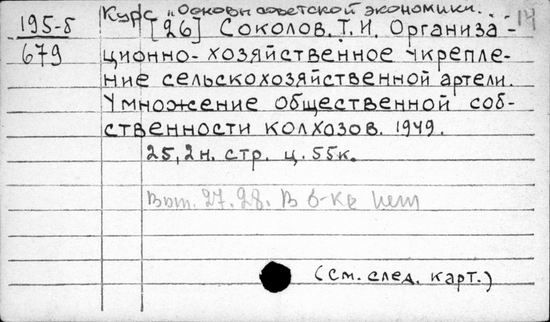 Курс „Основы советской экономики.
14
195-8
679
[26] Соколов. Т. И. Организа-
ционно-хозяйственное укрепле-
ние сельскохозяйственной артели.
Умножение общественной соб-
ственности колхозов. 1949.
25, 2н. стр. ц. 55к.
Вып. 27. 28. В б-ке нет
(см. след. карт.)